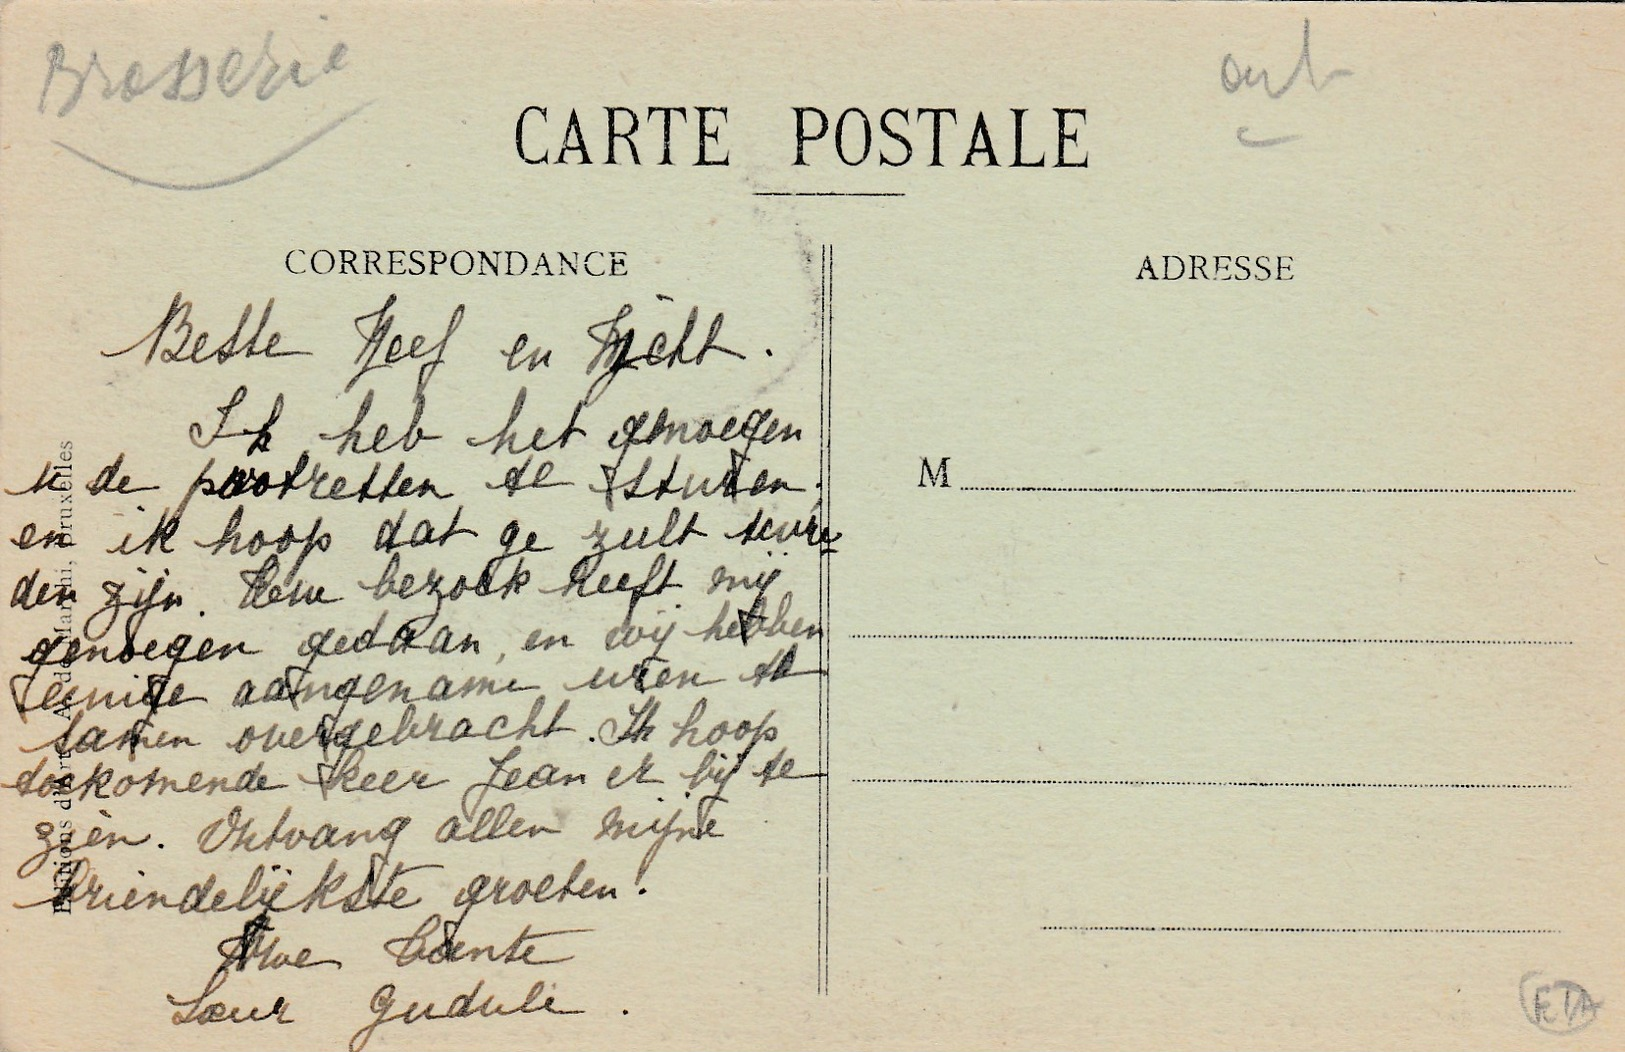 Brasserie
CARTE POSTALE
CORRESPONDANCE
ADRESSE
Beste Neef en Nicht.
Ik heb het genoegen
u de portretten te sturen,
en ik hoop dat ge zult tevre
den zijn. Uw bezoek heeft mij
genoegen gedaan, en wij hebben
eenige aangename uren te
samen overgebracht. Ik hoop
toekomende keer Jean er bij te
zien. Ontvang allen mijne
vriendelijkste groeten.
Uwe Tante
Sœur Gudule.
M
Editions d'art A. de Marchi, Bruxelles
ETA